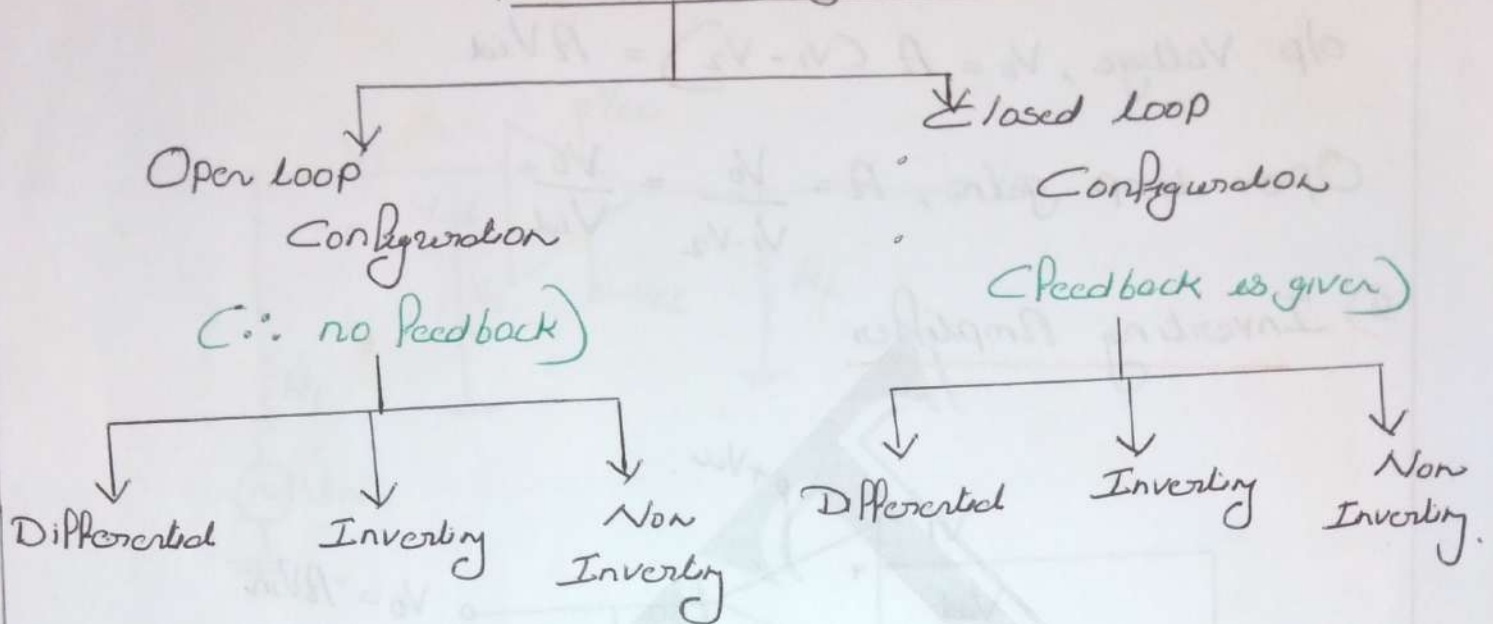 Open Loop
Configuration
(∴ no feedback)
Differential
Inverting
Non
Inverting
Closed Loop
Configuration
(feedback is given)
Differential
Inverting
Non
Inverting.